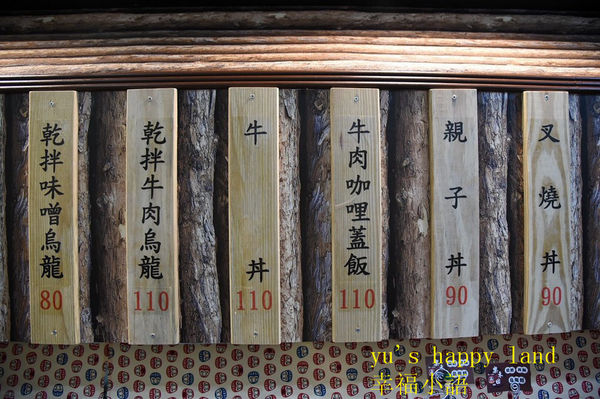 叉燒丼
90
親子丼
90
牛肉咖哩蓋飯
110
牛丼
110
乾拌牛肉烏龍
110
乾拌味噌烏龍
80
yu's happy land
幸福小語